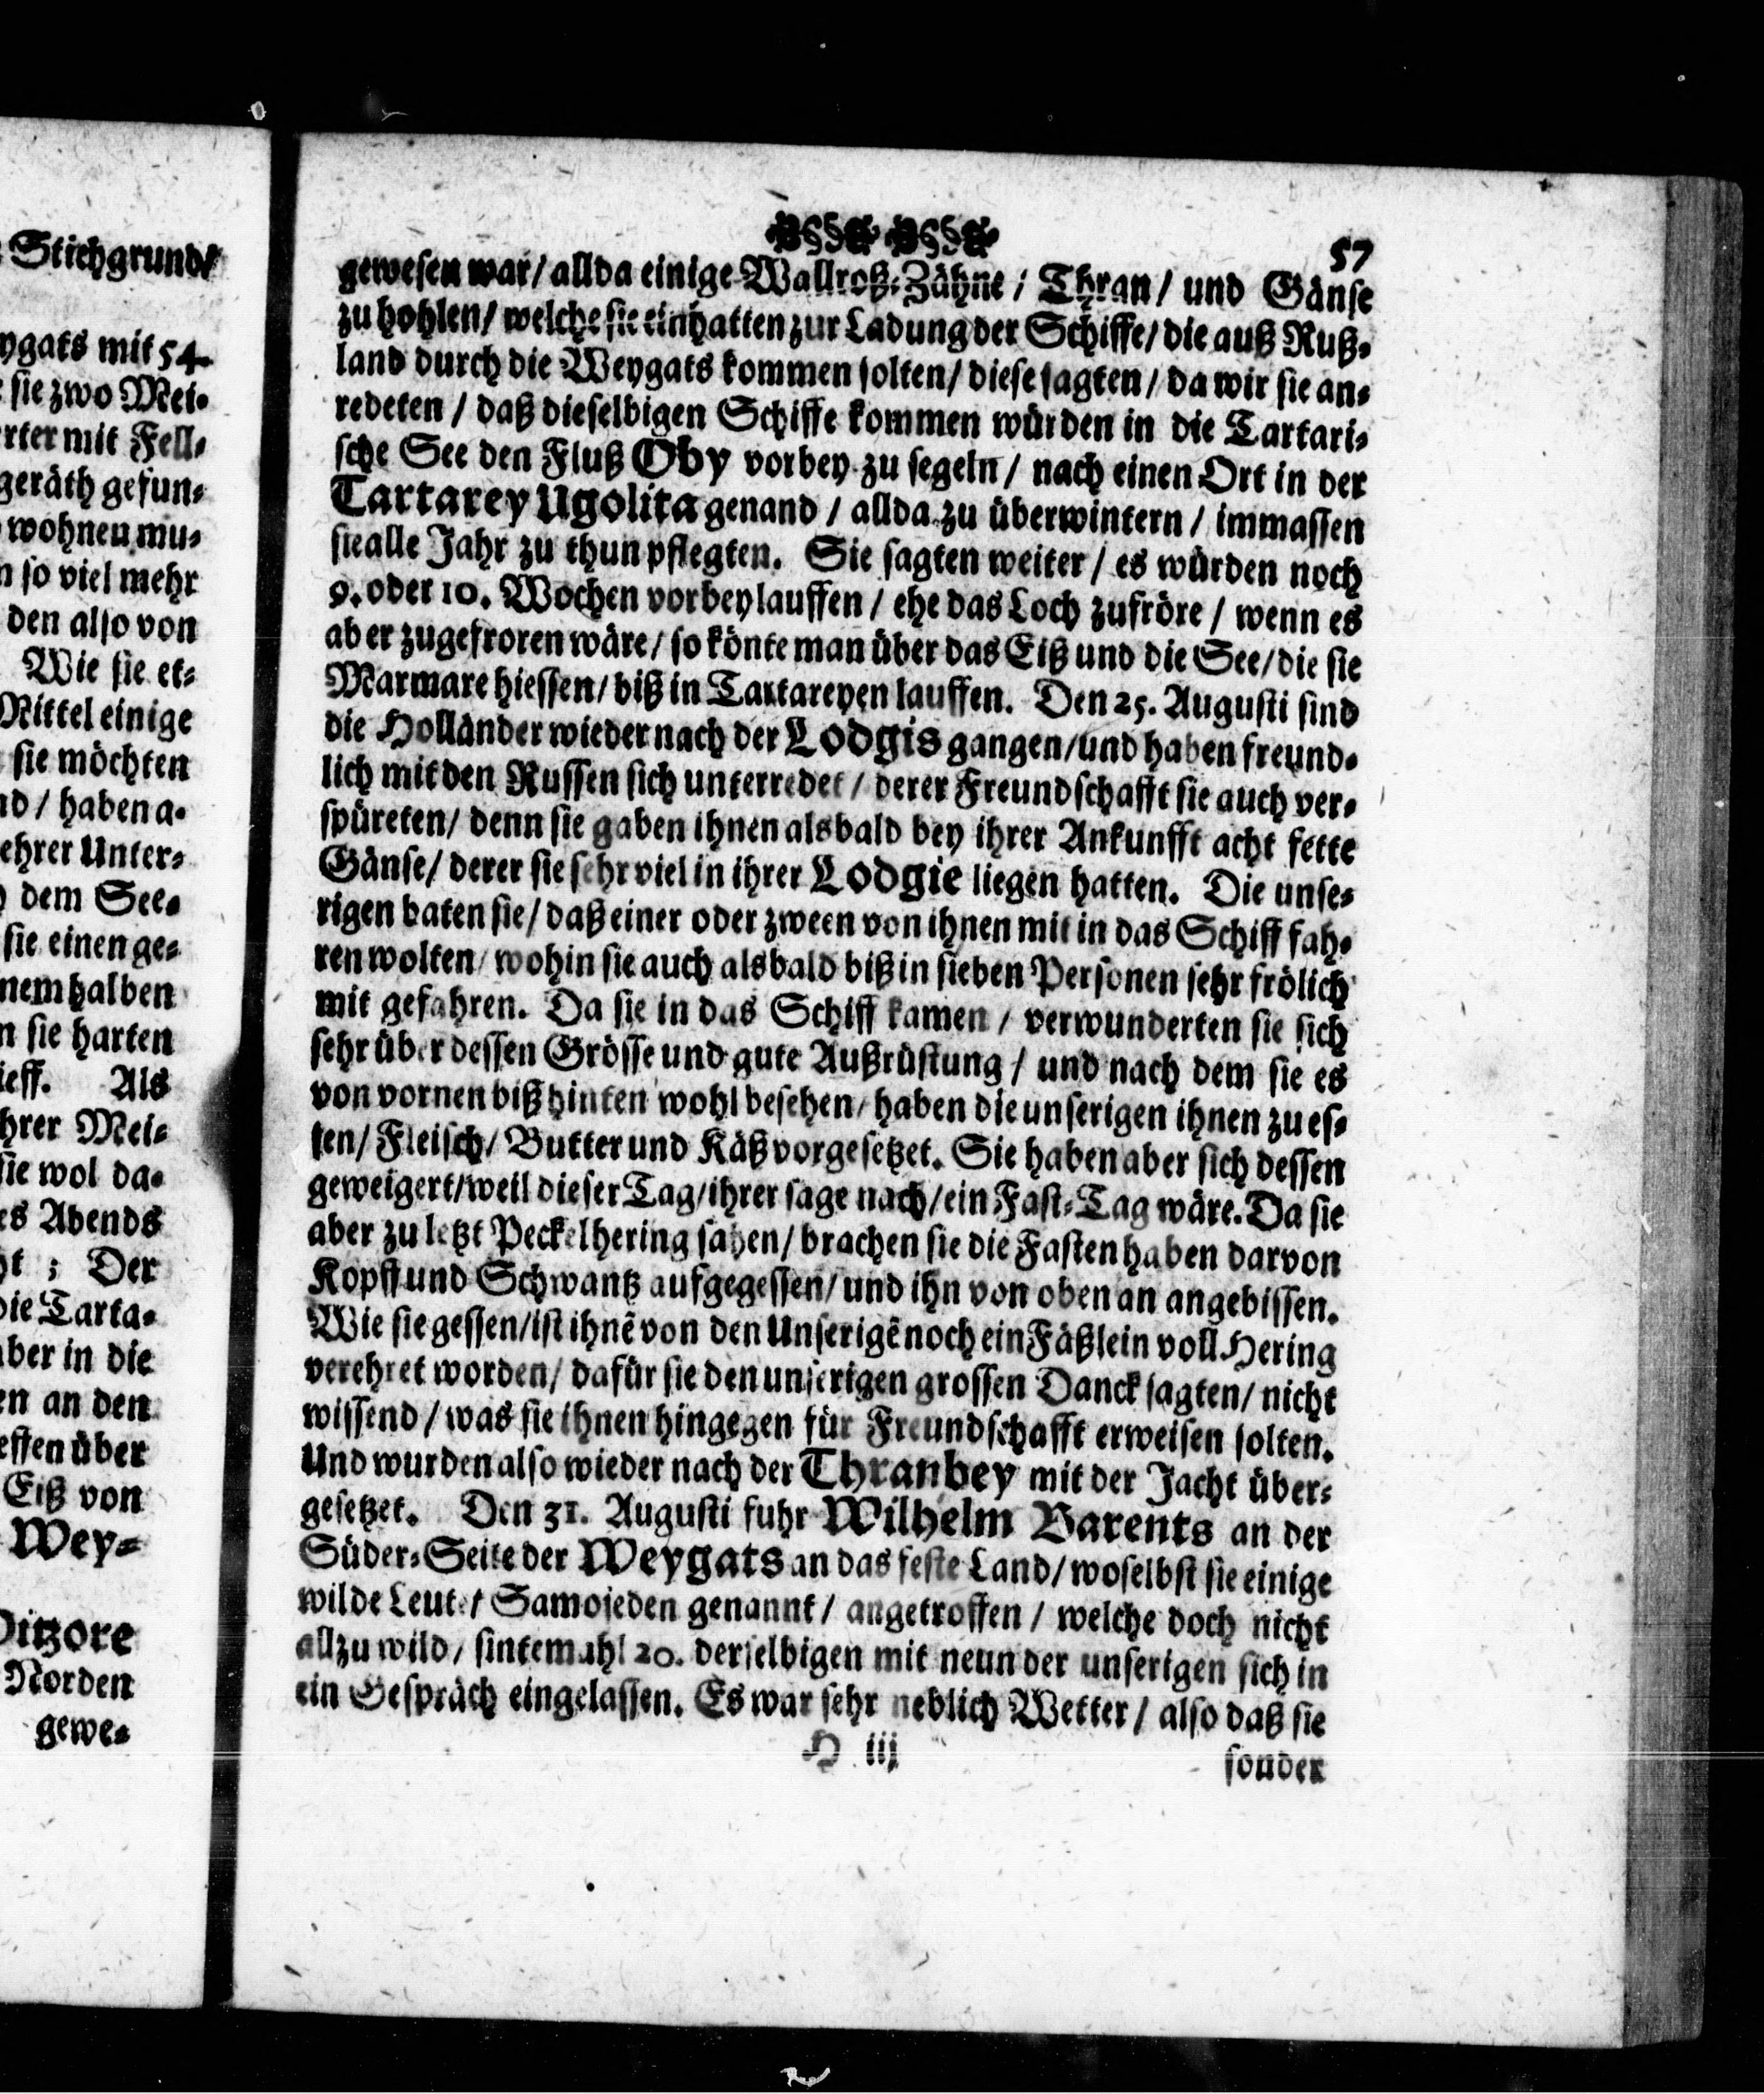 Stichgrund/
ygats mit 54.
sie zwo Mei⸗
rter mit Fell⸗
geräth gefun⸗
wohnen mu⸗
n so viel mehr
den also von
Wie sie et⸗
Mittel einige
sie möchten
nd / haben a⸗
ehrer Unter⸗
dem See⸗
sie einen ge⸗
nem halben
n sie harten
ieff. Als
hrer Mei⸗
sie wol da⸗
es Abends
ht ; Der
die Tarta⸗
aber in die
en an den
essen über
Eiß von
Wey⸗
Pitzore
Norden
gewe⸗
57
gewesen war / allda einige Wallroß⸗Zähne / Thran / und Gänse
zu hohlen / welche sie einhatten zur Ladung der Schiffe / die auß Ruß⸗
land durch die Weygats kommen solten / diese sagten / da wir sie an⸗
redeten / daß dieselbigen Schiffe kommen würden in die Tartari⸗
sche See den Fluß Oby vorbey zu segeln / nach einen Ort in der
Tartarey Ugolita genand / allda zu überwintern / immassen
sie alle Jahr zu thun pflegten. Sie sagten weiter / es würden noch
9. oder 10. Wochen vorbey lauffen / ehe das Loch zufröre / wenn es
aber zugefroren wäre / so könte man über das Eiß und die See / die sie
Marmare hiessen / biß in Tartareyen lauffen. Den 25. Augusti sind
die Holländer wieder nach der Lodgis gangen / und haben freund⸗
lich mit den Russen sich unterredet / derer Freundschafft sie auch ver⸗
spüreten / denn sie gaben ihnen alsbald bey ihrer Ankunfft acht fette
Gänse / derer sie sehr viel in ihrer Lodgie liegen hatten. Die unse⸗
rigen baten sie / daß einer oder zween von ihnen mit in das Schiff fah⸗
ren wolten / wohin sie auch alsbald biß in sieben Personen sehr frölich
mit gefahren. Da sie in das Schiff kamen / verwunderten sie sich
sehr über dessen Grösse und gute Außrüstung / und nach dem sie es
von vornen biß hinten wohl besehen / haben die unserigen ihnen zu es⸗
sen / Fleisch / Butter und Käß vorgesetzet. Sie haben aber sich dessen
geweigert / weil dieser Tag / ihrer sage nach / ein Fast⸗Tag wäre. Da sie
aber zu letzt Peckelhering sahen / brachen sie die Fasten haben darvon
Kopff und Schwantz aufgegessen / und ihn von oben an angebissen.
Wie sie gessen / ist ihnẽ von den Unserigẽ noch ein Fäßlein voll Hering
verehret worden / dafür sie den unserigen grossen Danck sagten / nicht
wissend / was sie ihnen hingegen für Freundschafft erweisen solten.
Und wurden also wieder nach der Thranbey mit der Jacht über⸗
gesetzet. Den 31. Augusti fuhr Wilhelm Barents an der
Süder⸗Seite der Weygats an das feste Land / woselbst sie einige
wilde Leute / Samojeden genannt / angetroffen / welche doch nicht
allzu wild / sintemahl 20. derselbigen mit neun der unserigen sich in
ein Gespräch eingelassen. Es war sehr neblich Wetter / also daß sie
H iij
sonder